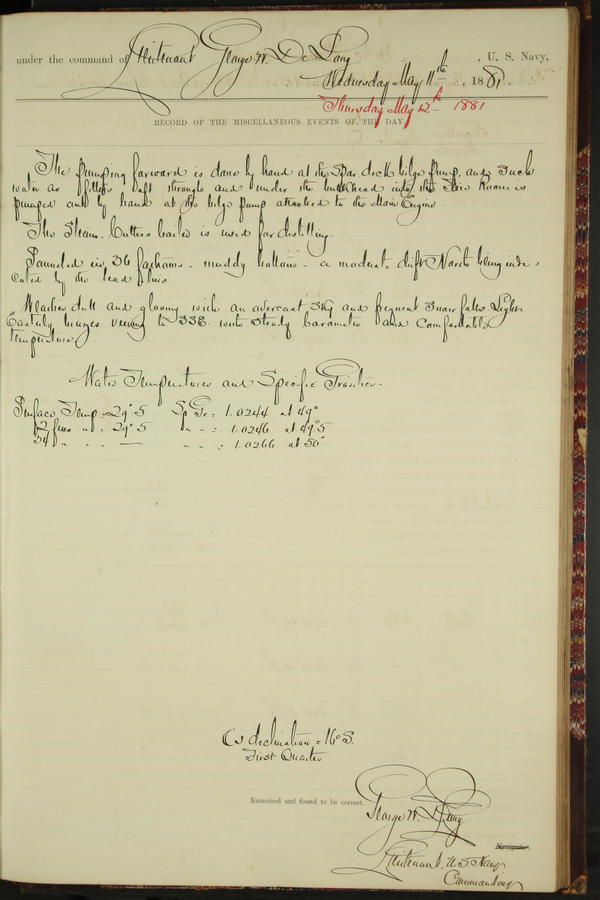 under the command of Lieutenant George W. De Long, U. S. Navy,
Wednesday May 11th, 1881.
Thursday May 12th 1881
RECORD OF THE MISCELLANEOUS EVENTS OF THE DAY.
The pumping forward is done by hand at the Spar deck bilge pump, and such
water as filters aft through and under the bulkhead into the Fire Room is
pumped out by hand at the bilge pump attached to the Main Engine
The Steam Cutters boiler is used for distilling.
Sounded in 36 fathoms - muddy bottom - a moderate drift North being indi-
cated by the lead line.
Weather dull and gloomy with an overcast sky and frequent snow falls. Light
Easterly breezes veering to SSE. with steady barometer and comfortable
temperature
Water Temperatures and Specific Gravities.
Surface Temp = 29°.5 Sp Gr = 1.0244 at 49°
12 fms " = 29°.5 " " = 1.0246 at 49°.5
34 " " — " " = 1.0266 at 50°.
☾s declination = 16° S.
First Quarter
Examined and found to be correct.
George W. De Long
Navigator.
Lieutenant, U.S. Navy
Commanding